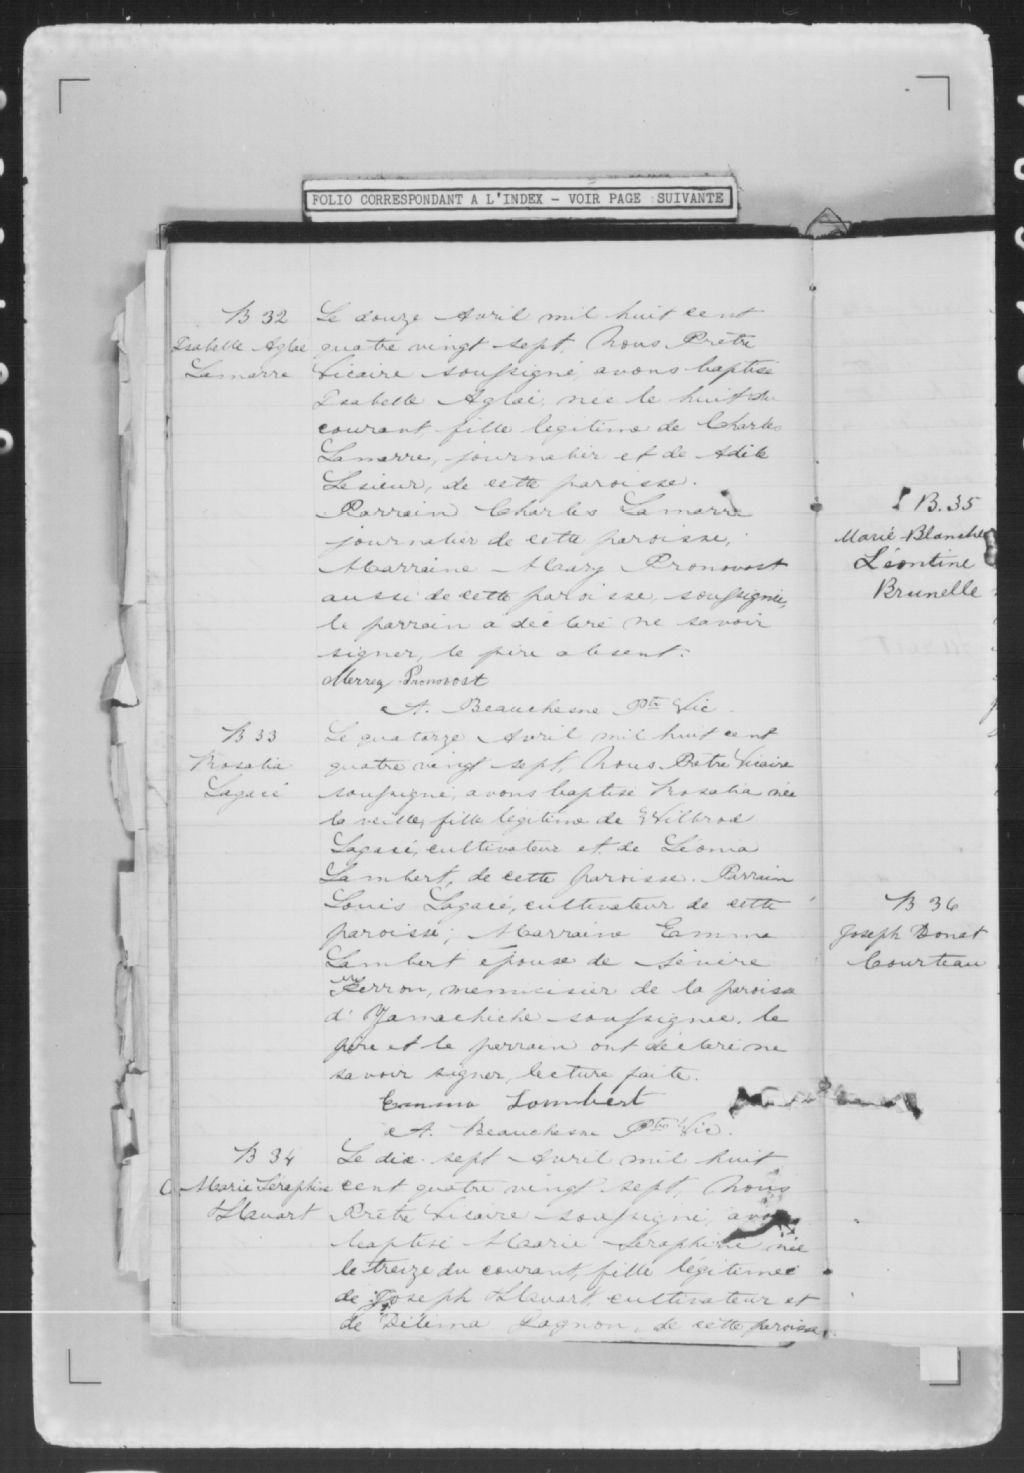 FOLIO CORRESPONDANT A L'INDEX - VOIR PAGE SUIVANTE
B 32
Isabelle Aglae
Lamarre
Le douze Avril mil huit cent
quatre vingt sept, Nous Prêtre
Vicaire soussigné, avons baptisé
Isabelle Aglaé, née le huit du
courant, fille légitime de Charles
Lamarre, journalier et de Adèle
Lesieur, de cette paroisse.
Parrain Charles Lamarre
journalier de cette paroisse,
Marraine Mary Pronovost
aussi de cette paroisse, soussignée,
le parrain a déclaré ne savoir
signer, le père absent.
Merrey Pronovost
A. Beauchesne Ptre Vic.
B 33
Rosalia
Lagacé
Le quatorze Avril mil huit cent
quatre vingt sept, Nous Prêtre Vicaire
soussigné, avons baptisé Rosalia née
la veille, fille légitime de Wilbrod
Lagacé, cultivateur et de Léoma
Lambert, de cette paroisse. Parrain
Louis Lagacé, cultivateur de cette
paroisse; Marraine Emma
Lambert épouse de Sévère
Ferron, menuisier de la paroisse
d'Yamachiche soussignée. le
père et le parrain ont déclaré ne
savoir signer, lecture faite.
Emma Lambert
A. Beauchesne Ptre Vic.
B 34
Marie Séraphine
Le dix-sept Avril mil huit
cent quatre vingt sept, Nous
Prêtre Vicaire soussigné, avons
baptisé Marie Séraphine née
le treize du courant, fille légitime
de Joseph cultivateur et
de Délima Gagnon, de cette paroisse.
B. 35
Marie-Blanche
Léontine
Brunelle
B 36
Joseph Donat
Courteau